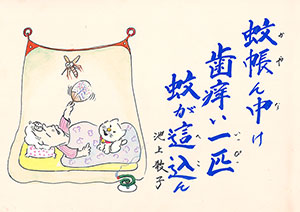 蚊帳ん中け
歯痒い一匹
蚊が這込ん
池上